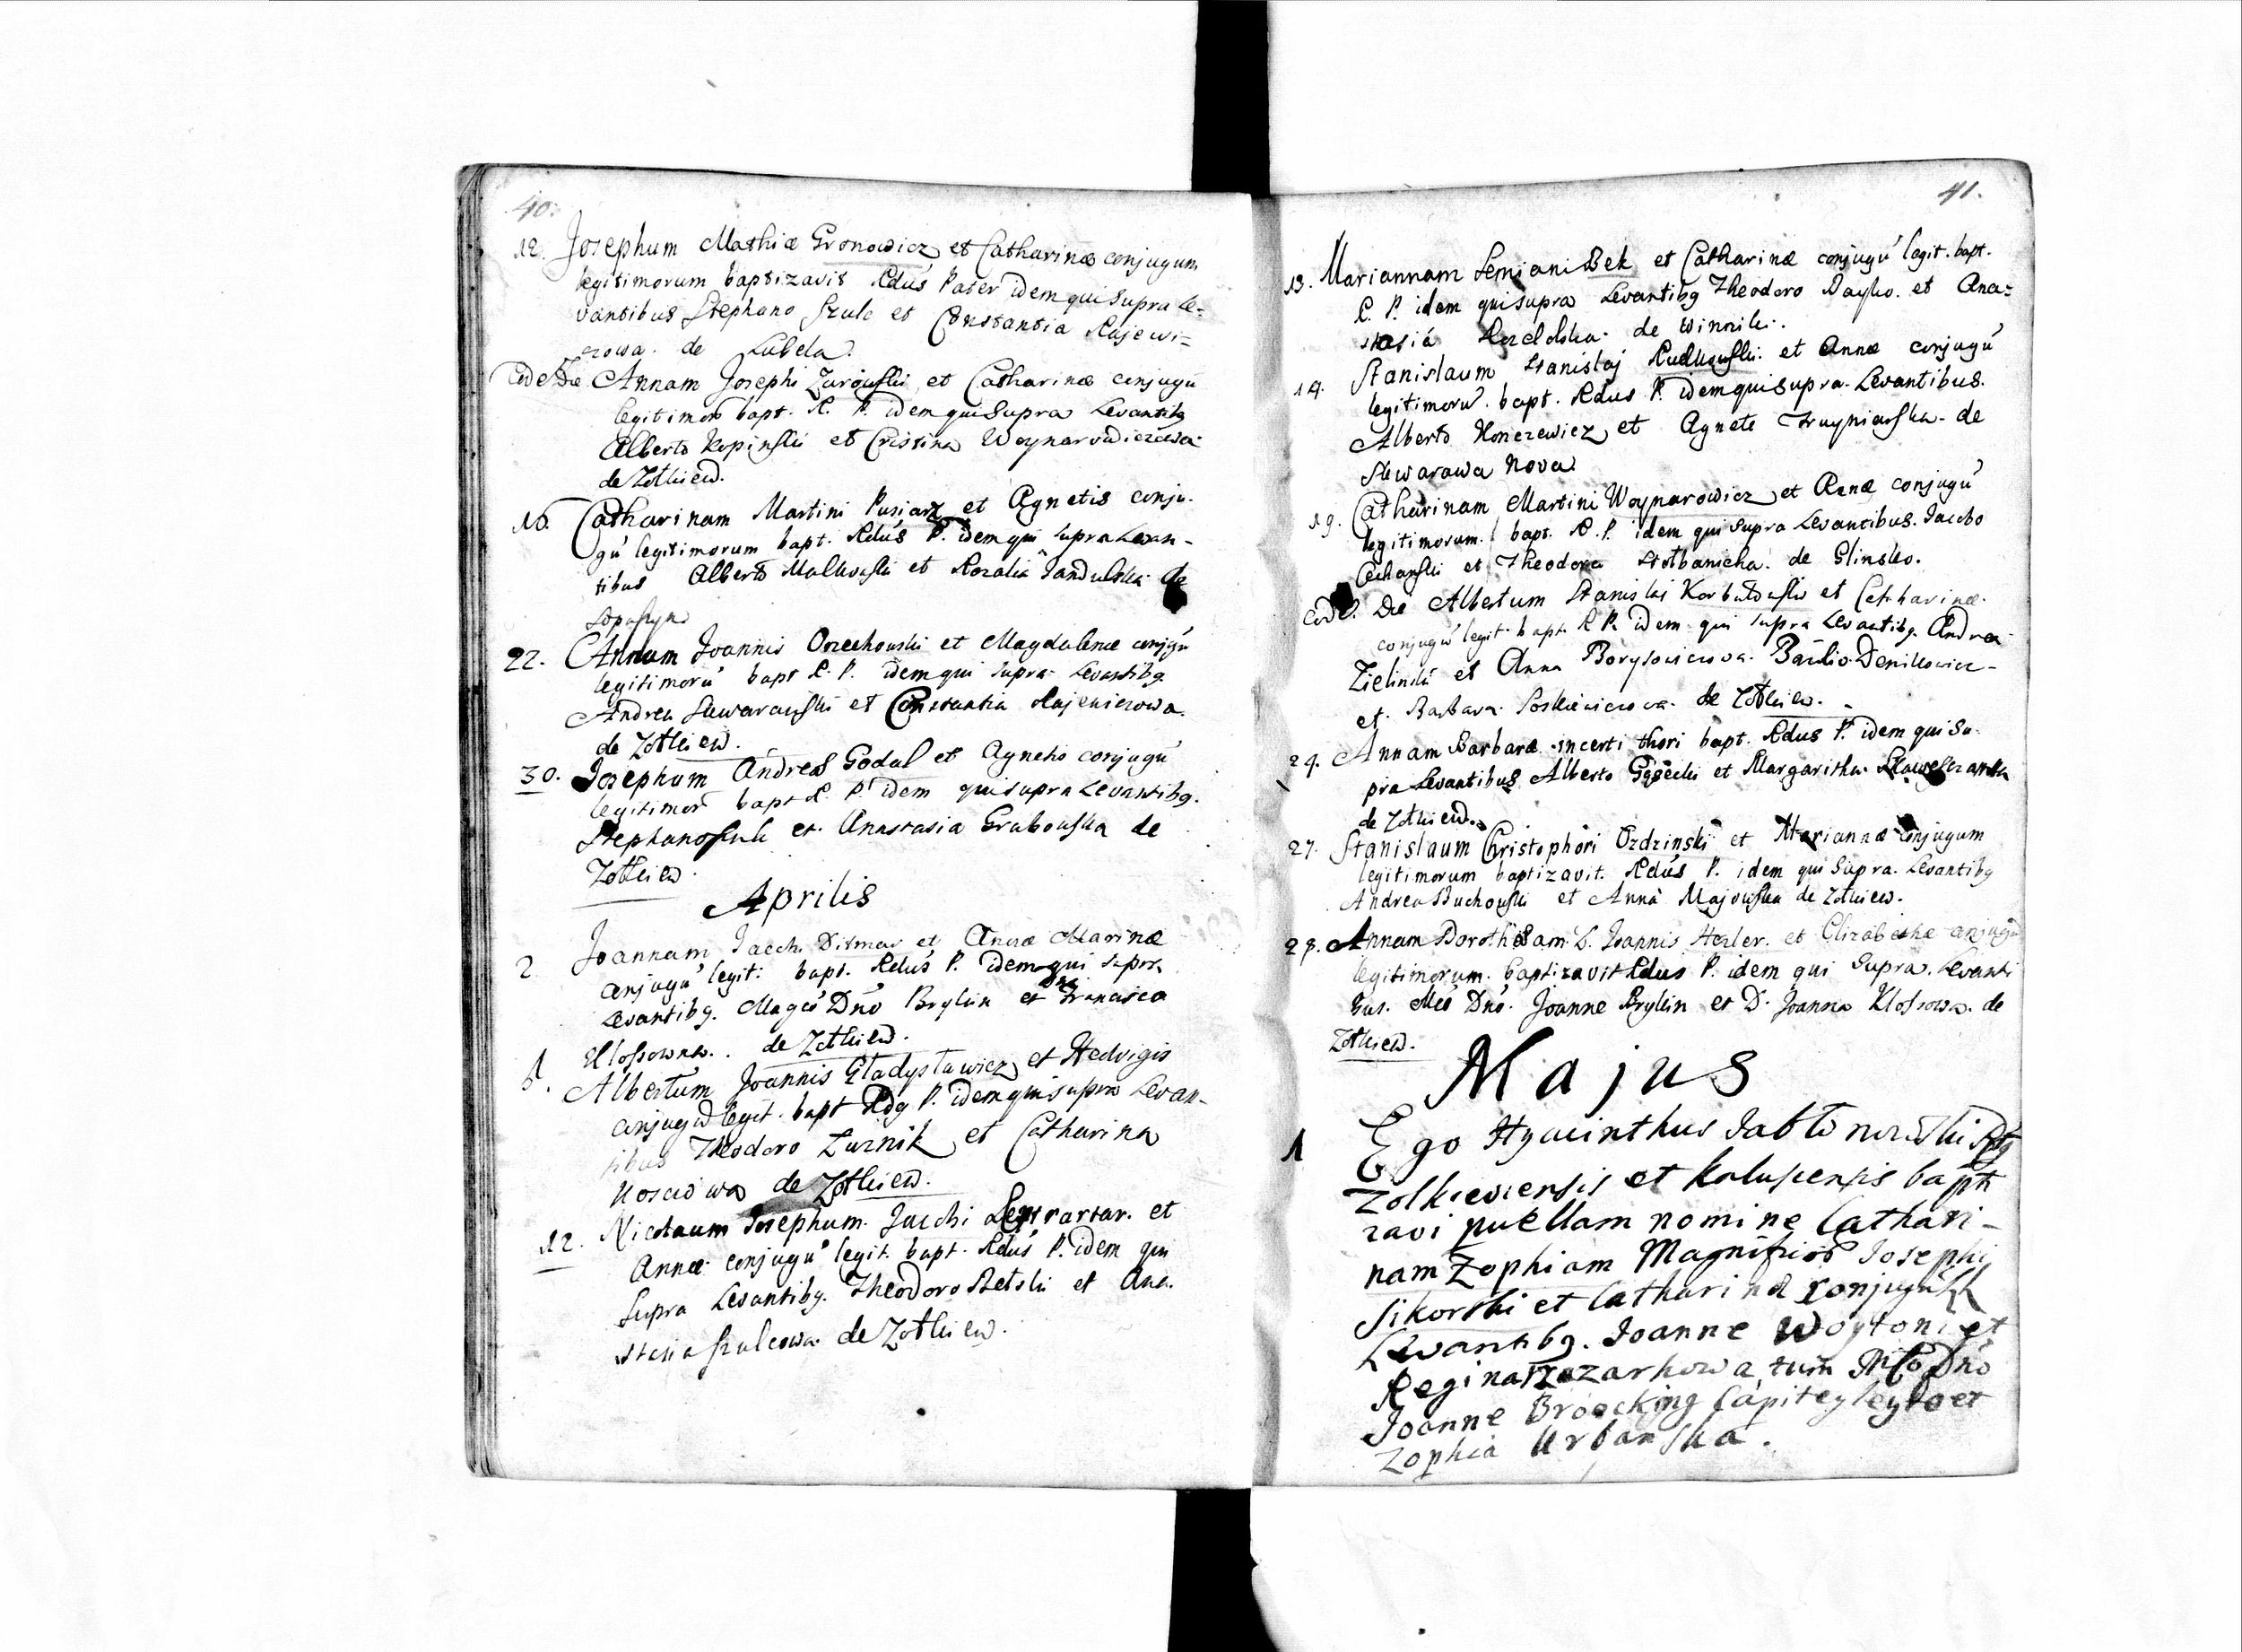 40.
12. Josephum Mathiæ Gronowicz et Catharinæ conjugum
legitimorum baptizavit Rdus Pater idem qui supra Le-
vantibus Stephano Szulc et Constantia Rajewi-
czowa de Lubela.
Eode Die Annam Josephi Zurowski et Catharinæ conjugu
legitimor bapt. R. P. idem qui supra Levantibg
Alberto Kopinski et Cristina Woynarowiczowa
de Zołkiew.
16. Catharinam Martini Pusiarz et Agnetis conju-
gu legitimorum bapt. Rdus P. idem qui supra Levan-
tibus Alberto Malkowski et Rozalia Jandulska de
Soposzyn
22. Annam Joannis Orzechowski et Magdalenæ conjugu
legitimoru bapt R. P. idem qui supra Levantibg
Andrea Skwarawski et Constantia Rajewiczowa.
de Zołkiew.
30. Josephum Andreæ Godul et Agnetis conjugu
legitimor bapt R. P. idem qui supra Levantibg.
Stephano Szulc et Annstasia Grabowska de
Zołkiew.
Aprilis
2 Joannam Jacobi Ditmar et Annæ Marinæ
conjugu legit: bapt. Rdus P. idem qui supra
Levantibg. Magco Dno Brylin et Dna Francisca
Klossowna. de Zołkiew.
Albertum Joannis Gładysławicz et Hedvigis
conjugu legit. bapt Rdg P. idem qui supra Levan-
tibus Theodoro Luznik et Catharina
Kosciowa de Zołkiew.
12. Nicolaum Josephum Jacobi et
Annæ conjugu legit. bapt. Rdus P. idem qui
Supra Levantibg. Theodoro Retski et Ana-
stasia Szulcowa de Zołkiew.
41.
13. Mariannam Semiani Bek et Catharinæ conjugu legit. bapt.
R. P. idem qui supra Levantibg Theodoro Dayko. et Ana-
stasia de Winniki.
14. Stanislaum Stanislaj Rudkowski et Annæ conjugu
legitimoru. bapt. Rdus P. idem qui supra Levantibus.
Alberto Honczewicz et Agnete Truyniarska de
Skwarawa Nova
19. Catharinam Martini Woynarowicz et Annæ conjugu
legitimorum. bapt. R. P. idem qui supra Levantibus. Jacobo
Cichanski et Theodora Stolbanicha. de Glinsko.
Eode. Die Albertum Stanislai et Catharinæ
conjugu legit. bapt. R P. idem qui supra Levantibg. Andrea
Zielinski et Anna Borysowiczowa. Basilio Denikowicz
et. Barbara Poskiewiczowa de Zołkiew.
24. Annam Barbaræ incerti thori bapt. Rdus P. idem qui Su-
pra Levantibus Alberto Gąsecki et Margaritha
de Zołkiew.
27. Stanislaum Christophori Ozdzinski et Mariannæ conjugum
legitimorum baptizavit. Rdus P. idem qui Supra. Levantibg
Andrea Buchowski et Anna Majowska de Zołkiew.
28. Annam Dorotheam L. Joannis Hezler. et Elizabethæ conjugu
legitimorum. baptizavit Rdus P. idem qui Supra. Levanti
bus. Mco Dno. Joanne Brylin et D. Joanna Klossowa. de
Zołkiew.
Majus
1 Ego Hyacinthus Jabłonowski Pptg
Zolkieviensis et Kalusensis bapti
zavi puellam nomine Cathari-
nam Zophiam Magnificor Josephi
Sikorski et Catharinæ Conjugu LL
Levantibg. Joanne Woytoni et
Regina Zozarkowa tum Mco Dno
Joanne Broecking Capitey leyt o et
Zophia Urbanska.